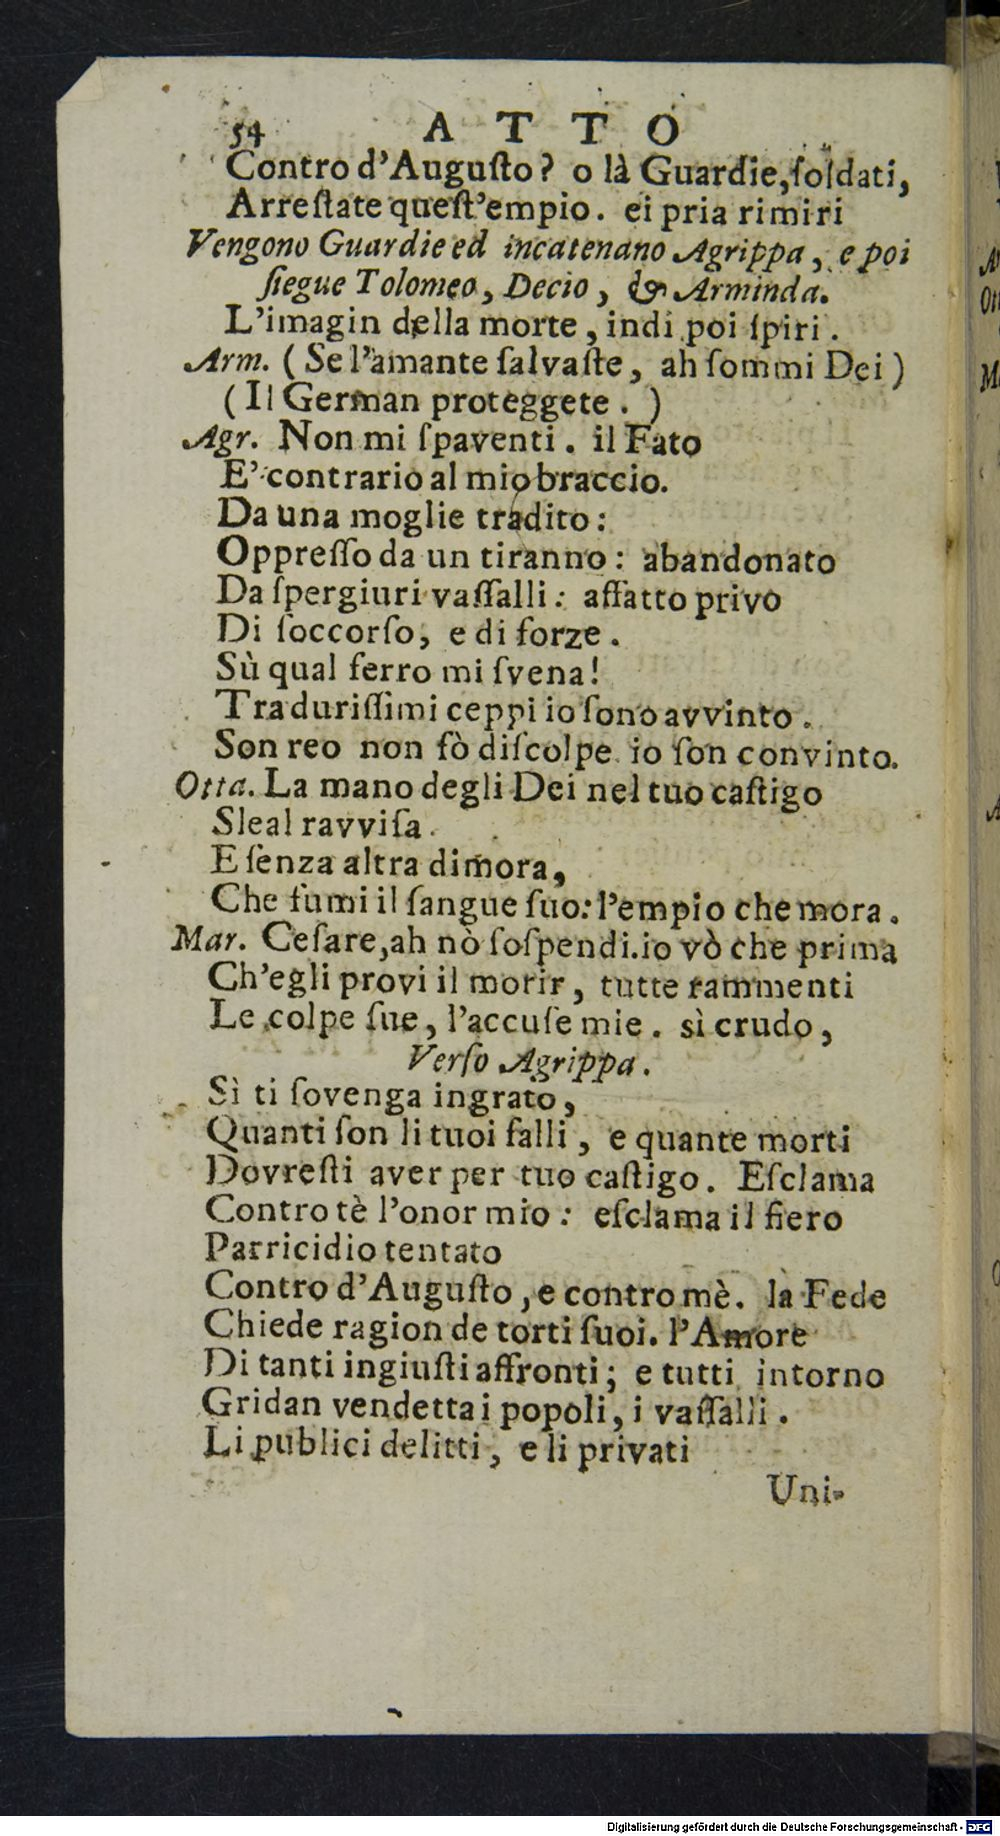 54 ATTO
Contro d'Auguſto? o là Guardie, ſoldati,
Arreſtate queſt'empio. ei pria rimiri
Vengono Guardie ed incatenano Agrippa, e poi
ſiegue Tolomeo, Decio, & Arminda.
L'imagin della morte, indi poi ſpiri.
Arm. (Se l'amante ſalvaſte, ah ſommi Dei)
(Il German proteggete. )
Agr. Non mi ſpaventi. il Fato
E' contrario al mio braccio.
Da una moglie tradito:
Oppreſſo da un tiranno: abandonato
Da ſpergiuri vaſſalli: affatto privo
Di ſoccorſo, e di forze.
Sù qual ferro mi ſvena!
Tra duriſſimi ceppi io ſono avvinto.
Son reo non fò diſcolpe io ſon convinto.
Otta. La mano degli Dei nel tuo caſtigo
Sleal ravviſa.
E ſenza altra dimora,
Che fumi il ſangue ſuo: l'empio che mora.
Mar. Ceſare, ah nò ſoſpendi. io vò che prima
Ch'egli provi il morir, tutte rammenti
Le colpe ſue, l'accuſe mie. sì crudo,
Verſo Agrippa.
Sì ti ſovenga ingrato,
Quanti ſon li tuoi falli, e quante morti
Dovreſti aver per tuo caſtigo. Eſclama
Contro tè l'onor mio: eſclama il fiero
Parricidio tentato
Contro d'Auguſto, e contro mè. la Fede
Chiede ragion de torti ſuoi. l'Amore
Di tanti ingiuſti affronti; e tutti intorno
Gridan vendetta i popoli, i vaſſalli.
Li publici delitti, e li privati
Uni-
Digitalisierung gefördert durch die Deutsche Forschungsgemeinschaft - DFG